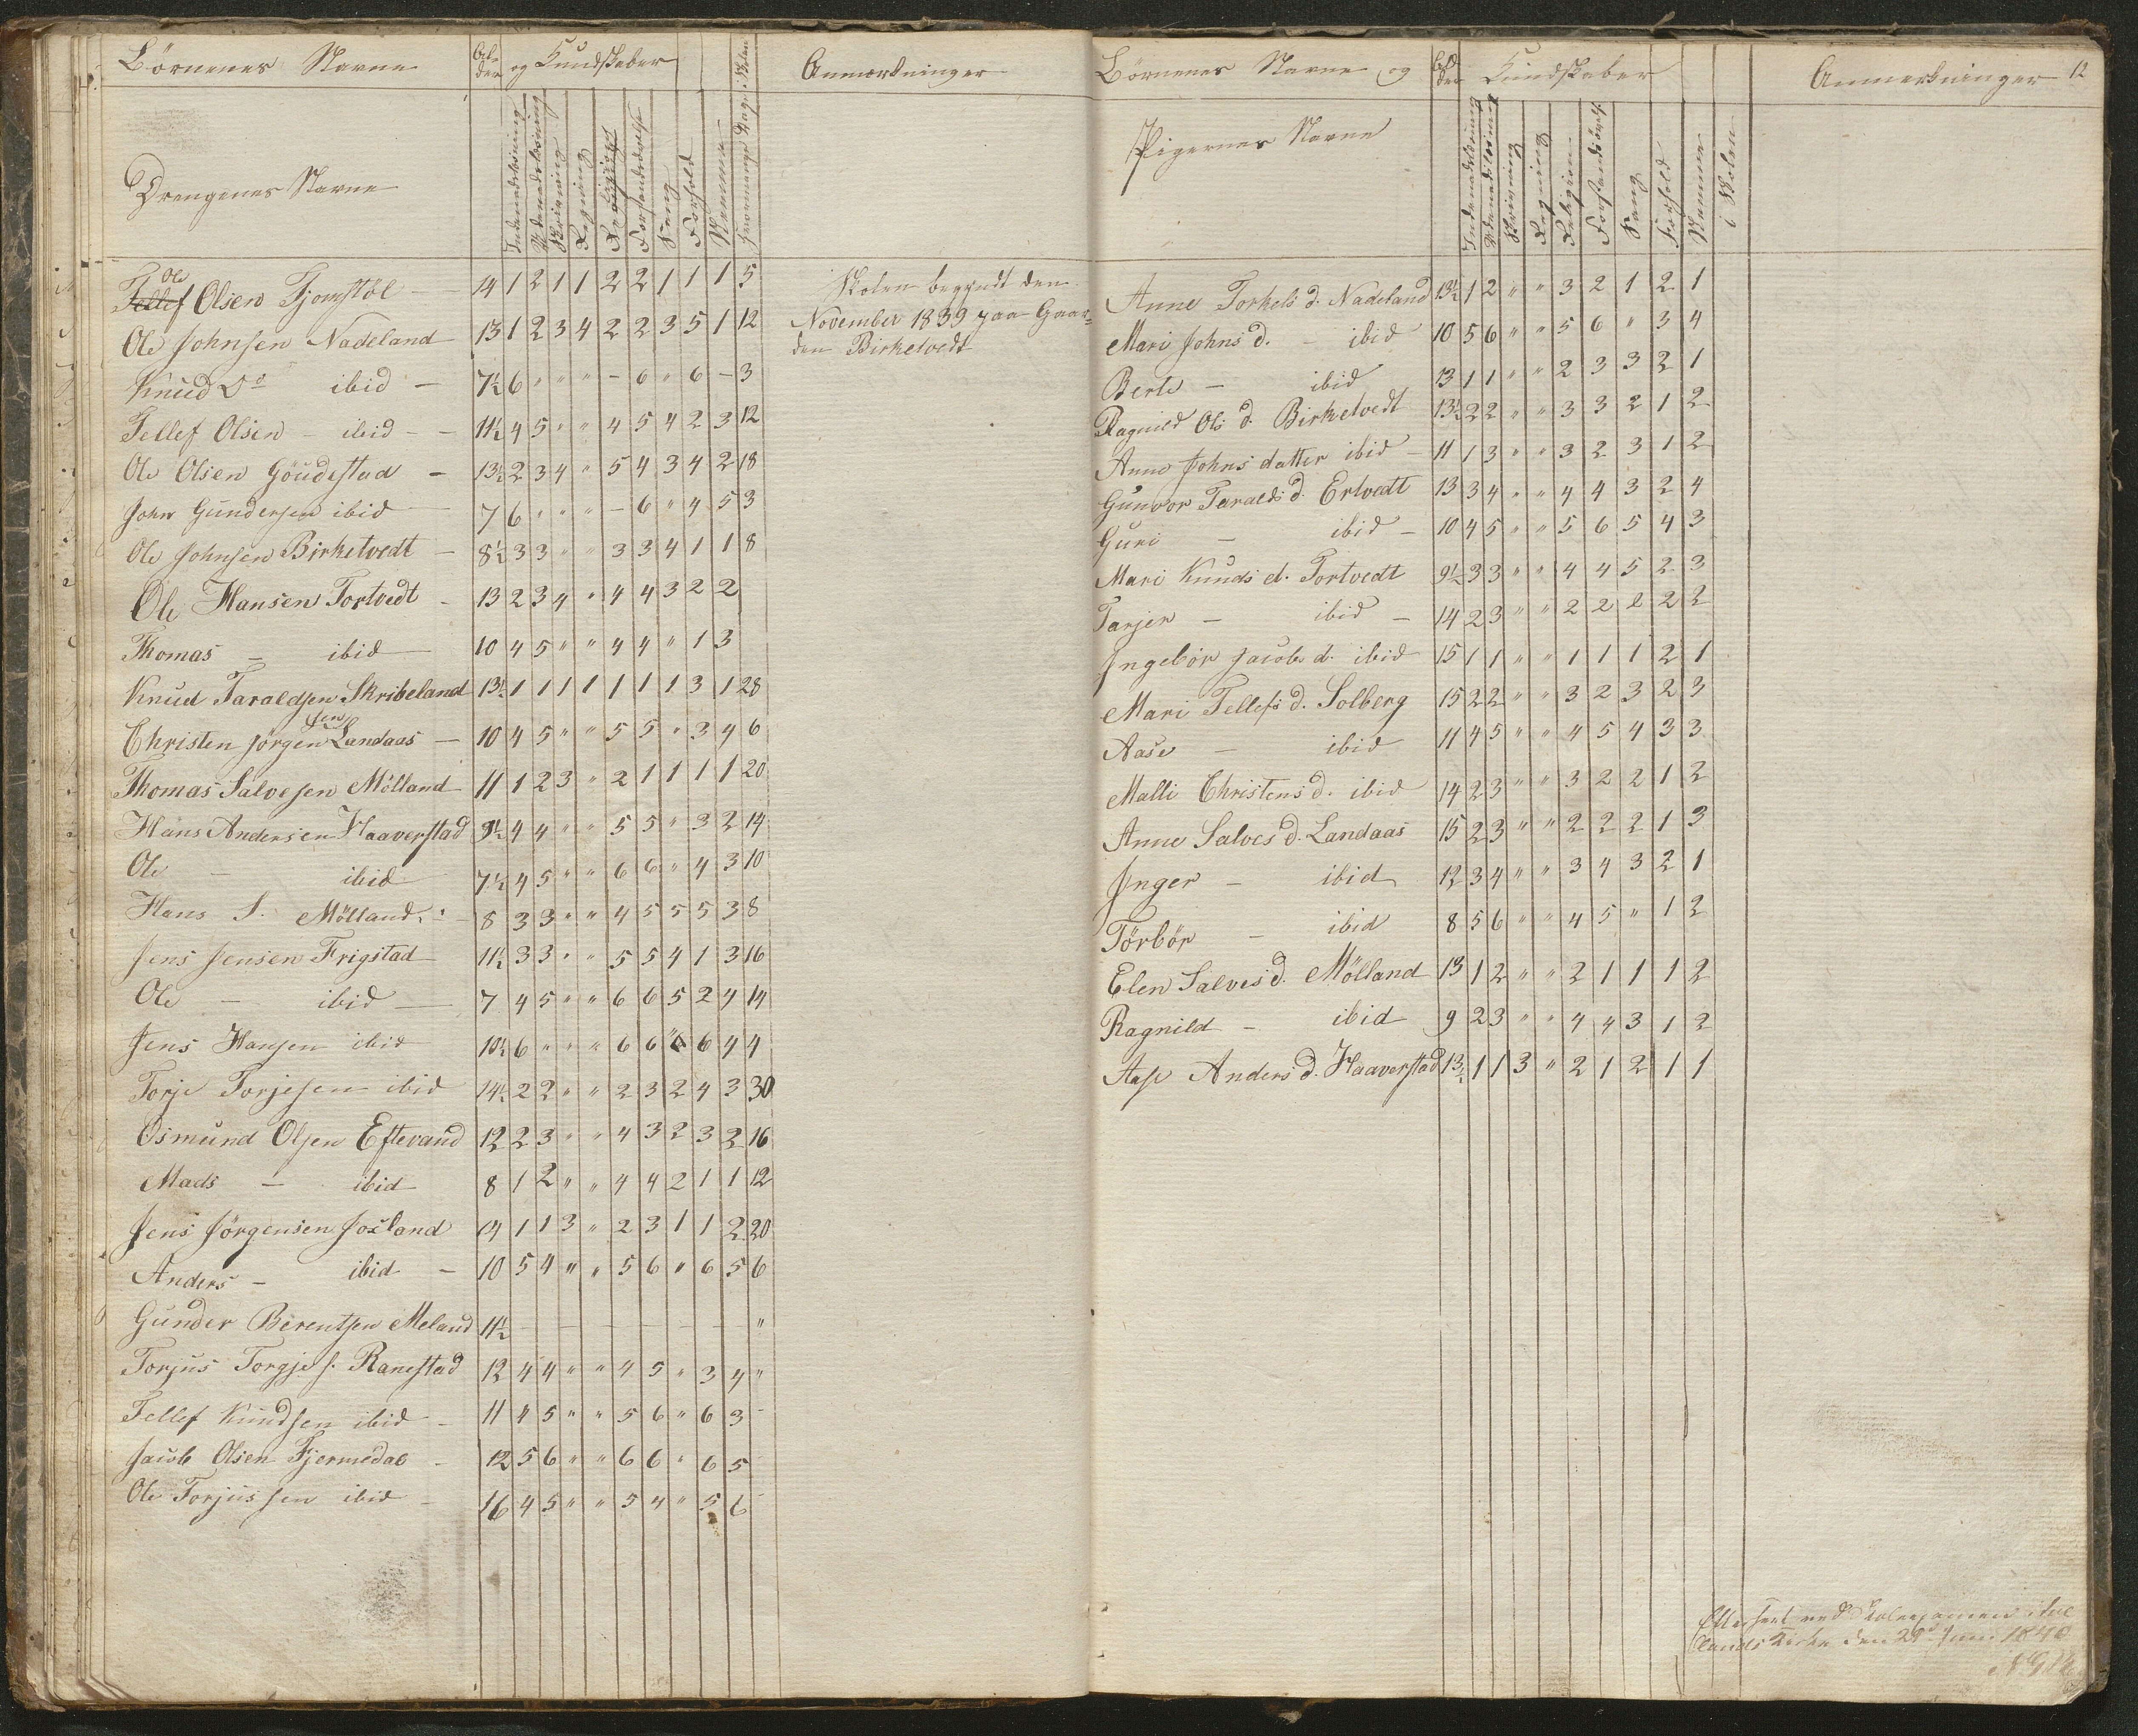 Börnenes Navne
Al-
der
og Kundskaber
Anmærkninger
Drengenes Navne
Indenadslæsning
Udenadslæsning
Skrivning
Regning
Religion
Forstandsøvelse
Sang
Forhold
Nemme
Fraværende Dage i Skolen
Ole
Tellef Olsen Fjomstöl — 14 1 2 1 1 2 2 1 1 1 5
Ole Johnsen Nadeland 13 1 2 3 4 2 2 3 5 1 12
Knud Do ibid — 7½ 6 " " " - 6 " 6 - 3
Tellef Olsen - ibid - - 11½ 4 5 " " 4 5 4 2 3 12
Ole Olsen Göudestad - 13½ 2 3 4 " 5 4 3 4 2 18
John Gundersen ibid 7 6 " " " - 6 " 4 5 3
Ole Johnsen Birketvedt - 8½ 3 3 " " 3 3 4 1 1 8
Ole Hansen Tortvedt - 13 2 3 4 " 4 4 3 2 2
Thomas - ibid 10 4 5 " " 4 4 " 1 3
Knud Taraldsen Skribeland 13½ 1 1 1 1 1 1 1 3 1 28
sen
Christen Jörgen Landaas - 10 4 5 " " 5 5 " 3 4 6
Thomas Salvesen Mölland 11 1 2 3 " 2 1 1 1 1 20
Hans Andersen Haaverstad 9½ 4 4 " " 5 5 " 3 2 14
Ole - ibid 7½ 4 5 " " 6 6 " 4 3 10
Hans S. Mölland 8 3 3 " " 4 5 5 5 3 8
Jens Jensen Frigstad 11½ 3 3 " " 5 5 4 1 3 16
Ole - ibid 7 4 5 " " 6 6 5 2 4 14
Jens Hansen ibid 10½ 6 " " " 6 6 " 6 4 4
Torje Torjesen ibid 14½ 2 2 " " 2 3 2 4 3 30
Osmund Olsen Eftevand 12 2 3 " " 4 3 2 3 2 16
Mads - ibid 8 1 2 " " 4 4 2 1 1 12
Jens Jörgensen Joxland 14 1 1 3 " 2 3 1 1 2 20
Anders - ibid - 10 5 4 " " 5 6 " 6 5 6
Gunder Berentsen Meland 11½ "
Torjus Torgjes. Ranestad 12 4 4 " " 4 5 " 3 4 "
Tellef Knudsen ibid - 11 4 5 " " 5 6 " 6 3
Jacob Olsen Fjermedal - 12 5 6 " " 6 6 " 6 5
Ole Torjussen ibid - 16 4 5 " " 5 4 " 5 6
Skolen begyndt den
November 1839 paa Gaar=
den Birketvedt
Börnenes Navne og
Al
der
Kundskaber
Anmerkninger 12
Pigernes Navne
Indenadslæsning
Udenadslæsning
Skrivning
Regning
Religion
Forstandsøvelse
Sang
Forhold
Nemme
i Skolen
Anne Torkels d. Nadeland 13½ 1 2 " " 3 2 1 2 1
Mari Johns d. - ibid 10 5 6 " " 5 6 " 3 4
Berte - ibid 13 1 1 " " 2 3 3 2 1
Ragnild Ols d. Birketvedt 13½ 2 2 " " 3 3 2 1 2
Anne Johns datter ibid - 11 1 3 " " 3 2 3 1 2
Gunvor Taralds d. Ertvedt 13 3 4 " " 4 4 3 2 4
Guri - ibid - 10 4 5 " " 5 6 5 4 3
Mari Knuds d. Tortvedt 9½ 3 3 " " 4 4 5 2 3
Tarjer - ibid - 14 2 3 " " 2 2 2 2 2
Ingebör Jacobs d. ibid 15 1 1 " " 1 1 1 2 1
Mari Tellefs d. Solberg 15 2 2 " " 3 2 3 2 3
Aase - ibid 11 4 5 " " 4 5 4 3 3
Malli Christens d. ibid 14 2 3 " " 3 2 2 1 2
Anne Salves d. Landaas 15 2 3 " " 2 2 2 1 3
Inger - ibid 12 3 4 " " 3 4 3 2 1
Törbör - ibid 8 5 6 " " 4 5 " 1 2
Elen Salves d. Mölland 13 1 2 " " 2 1 1 1 2
Ragnild - ibid 9 2 3 " " 4 4 3 1 2
Aase Anders d. Haaverstad 13½ 1 1 3 " 2 1 2 1 1
Efterseet ved Skoleexamen i
lands Kirke den 29de Juni 1840